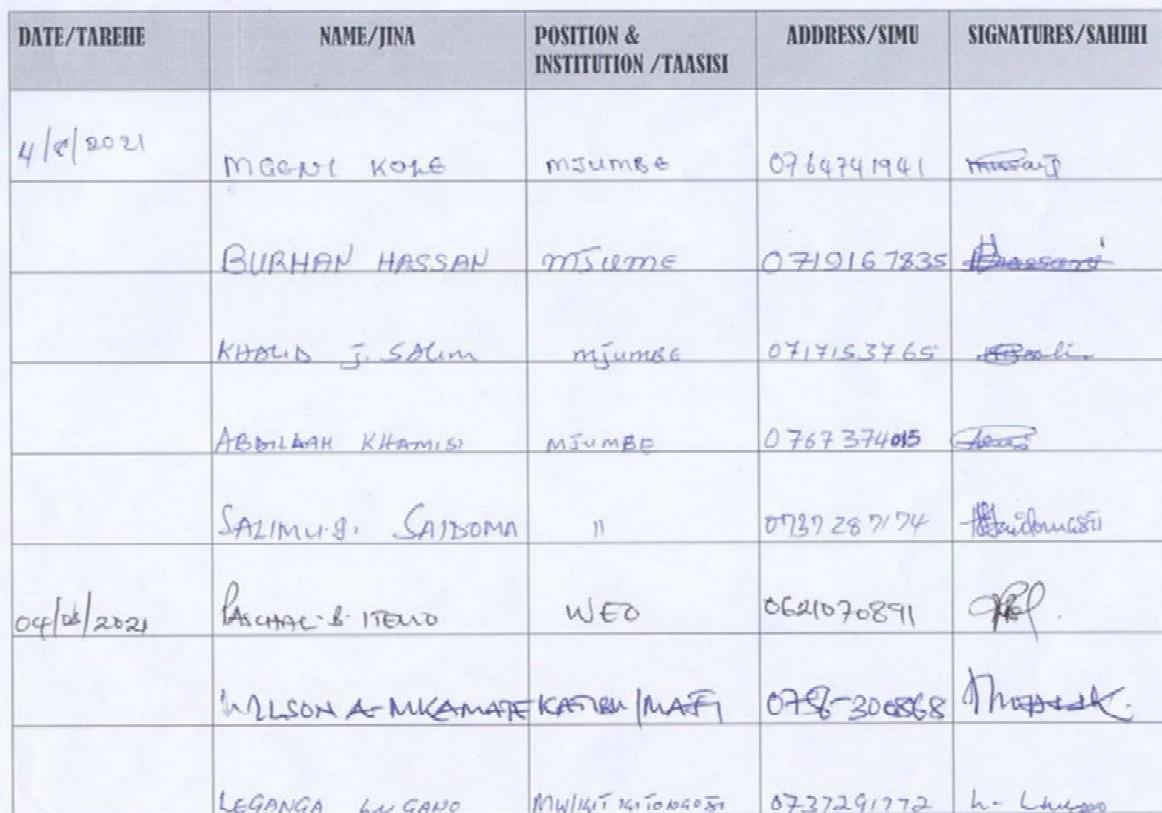 DATE/TAREHE NAME/JINA POSITION & INSTITUTION /TAASISI ADDRESS/SIMU SIGNATURES/SAHIHI
4/8/2021 MGENI KOLE MJUMBE 0764741941
BURHAN HASSAN MJUME 0719167835 Hassani
KHALID J. SALIM MJUMBE 0717153765
ABDILAAH KHAMISI MJUMBE 0767374015
SALIMU S. SAIDOMA 11 0737287174
04/08/2021 PASCHAL B. ITELLO WEO 0621070891
WILSON A- MKAMATE KATIBU/MAJI
LEGANGA LUGANO MW/KITI KITONGOJI 0737291772